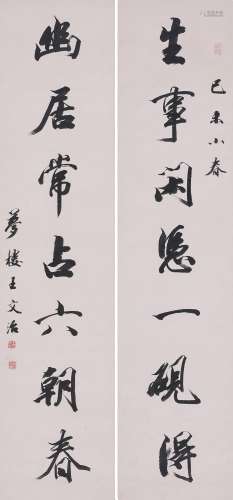 己未小春
生事閑憑一硯得
幽居常占六朝春
夢樓王文治